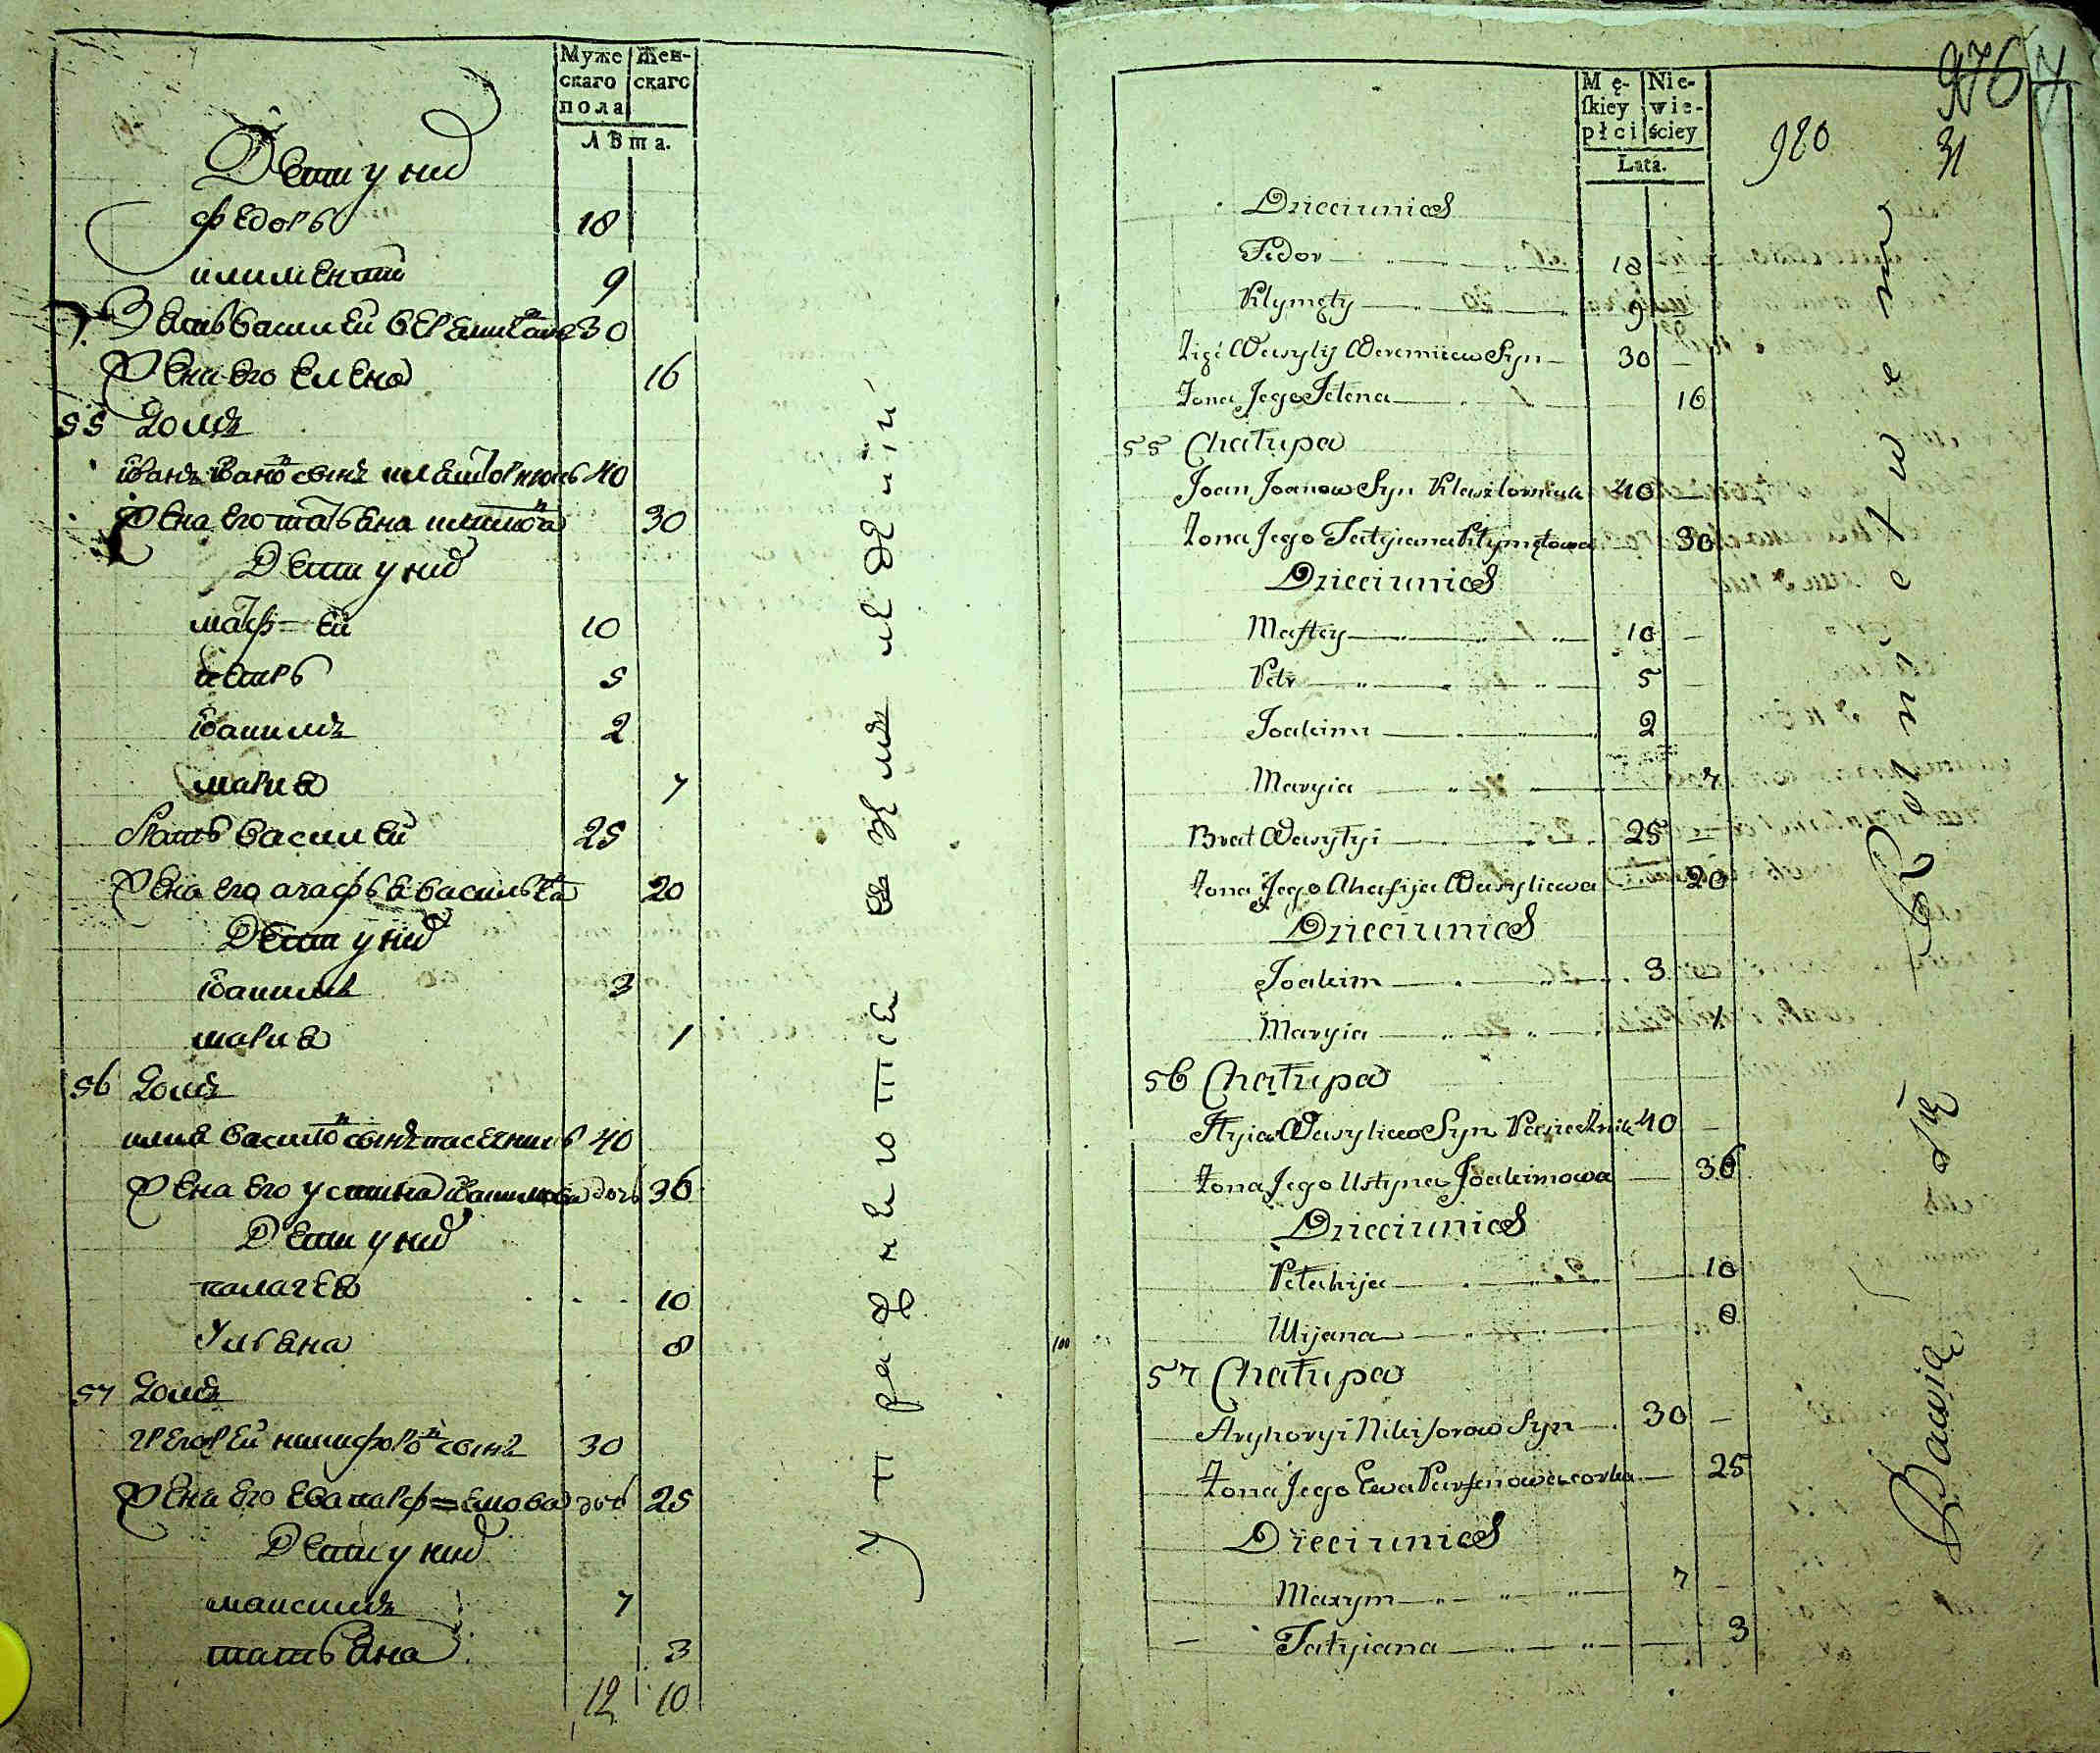 Муже Жен-
скаго скаго
пола
Лѣта.
Дети у них
Федоръ 18
Климентий 9
Зять Василей Веремиевъ 30
Жена его Елена 16
55 Домъ
Иванъ Ивановъ сынъ 40
Жена его Татьяна 30
Дети у них
Матфей 10
Петръ 5
Иоакимъ 2
Мария 7
Братъ Василей 25
Жена его Агафья Васильева 20
Дети у них
Иоакимъ 3
Мария 1
56 Домъ
Илия Васильевъ сынъ Пасечникъ 40
Жена его Устина Иоакимова дочь 36
Дети у них
Палагея 10
Ульяна 8
57 Домъ
Григорей Никифоровъ сынъ 30
Жена его Ева Парфенова дочь 25
Дети у них
Максимъ 7
Татьяна 3
12 10
Упражняются въ земледелии
976
31
920
Mę- Nie-
skiey wie-
płci ściey
Lata.
Dzieci u nich
Fedor 18
Klymęty 9
Zięć Wasylij Weremiiew Syn 30
Żona Jego Jelena 16
55 Chałupa
Joan Joanow Syn 40
Żona Jego Tatyiana Klymętowa 30
Dzieci u nich
Maftey 10
Petr 5
Joakim 2
Maryia 7
Brat Wasylyi 25
Żona Jego Ahafija Wasyliewa 20
Dzieci u nich
Joakim 3
Maryia 1
56 Chałupa
Ilyia Wasyliew Syn Pasiecznik 40
Żona Jego Ustyna Joakimowa 36
Dzieci u nich
Pełahija 10
Ulijana 8
57 Chałupa
Aryhoryi Nikiforow Syn 30
Żona Jego Ewa Parfenowa corka 25
Dzieci u nich
Maxym 7
Tatyiana 3
Bawią Się Rolnictwem